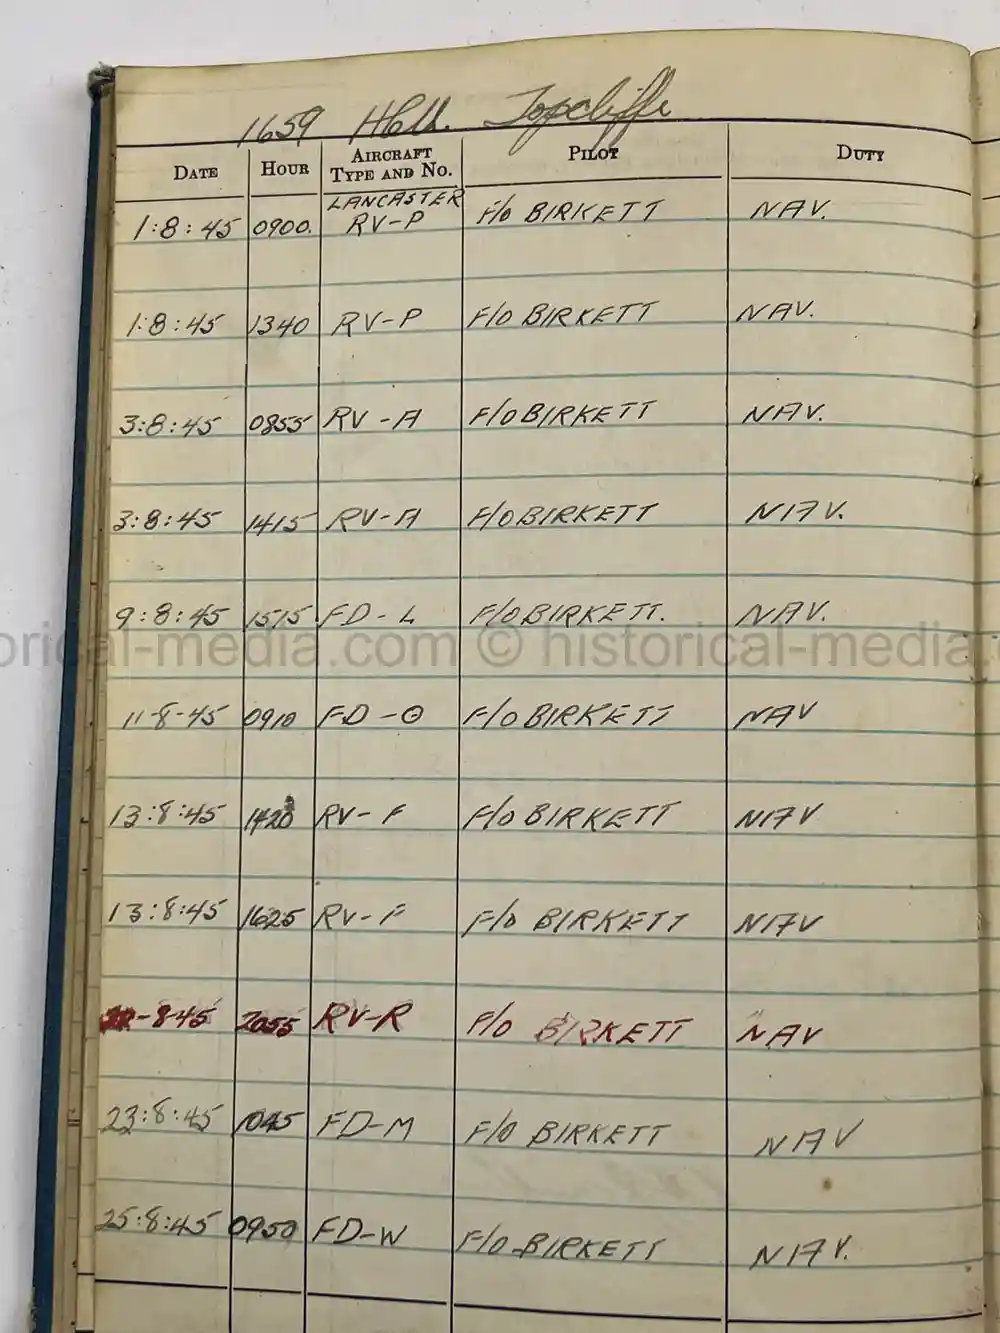 1659 Topcliffe
DATE HOUR AIRCRAFT TYPE AND NO. PILOT DUTY
LANCASTER
1:8:45 0900. RV-P F/O BIRKETT NAV.
1:8:45 1340 RV-P F/O BIRKETT NAV.
3:8:45 0855 RV-A F/O BIRKETT NAV.
3:8:45 1415 RV-A F/O BIRKETT NAV.
9:8:45 1515. FD-L F/O BIRKETT. NAV.
orical-media.com © historical-media.c
11-8-45 0910 FD-O F/O BIRKETT NAV
13:8:45 1420 RV-F F/O BIRKETT NAV
13:8:45 1625 RV-F F/O BIRKETT NAV
-8-45 2055 RV-R F/O BIRKETT NAV
23:8:45 1045 FD-M F/O BIRKETT NAV
25:8:45 0950 FD-W F/O BIRKETT NAV.